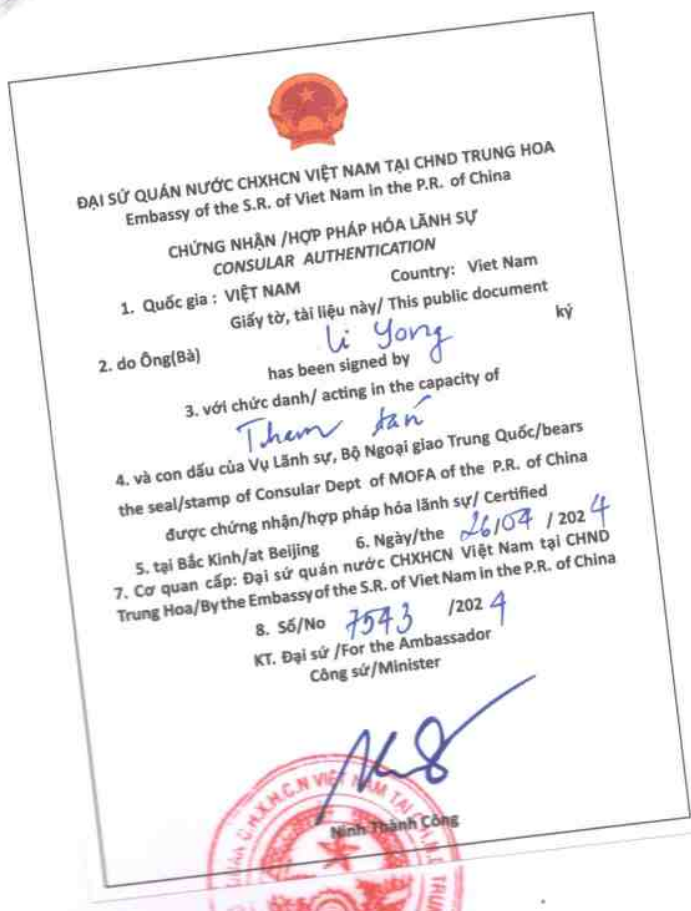 ĐẠI SỨ QUÁN NƯỚC CHXHCN VIỆT NAM TẠI CHND TRUNG HOA
Embassy of the S.R. of Viet Nam in the P.R. of China
CHỨNG NHẬN /HỢP PHÁP HÓA LÃNH SỰ
CONSULAR AUTHENTICATION
1. Quốc gia : VIỆT NAM Country: Viet Nam
Giấy tờ, tài liệu này/ This public document
2. do Ông(Bà) Li Yong ký
has been signed by
3. với chức danh/ acting in the capacity of
Tham tán
4. và con dấu của Vụ Lãnh sự, Bộ Ngoại giao Trung Quốc/bears
the seal/stamp of Consular Dept of MOFA of the P.R. of China
được chứng nhận/hợp pháp hóa lãnh sự/ Certified
5. tại Bắc Kinh/at Beijing 6. Ngày/the 26/04 / 2024
7. Cơ quan cấp: Đại sứ quán nước CHXHCN Việt Nam tại CHND
Trung Hoa/By the Embassy of the S.R. of Viet Nam in the P.R. of China
8. Số/No 7543 /2024
KT. Đại sứ /For the Ambassador
Công sứ/Minister
Ninh Thành Công